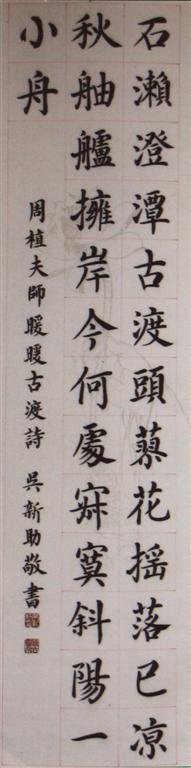 石瀨澄潭古渡頭蓼花搖落已凉
秋舳艫擁岸今何處寂寞斜陽一
小舟
周植夫師暖暖古渡詩 吳新助敬書